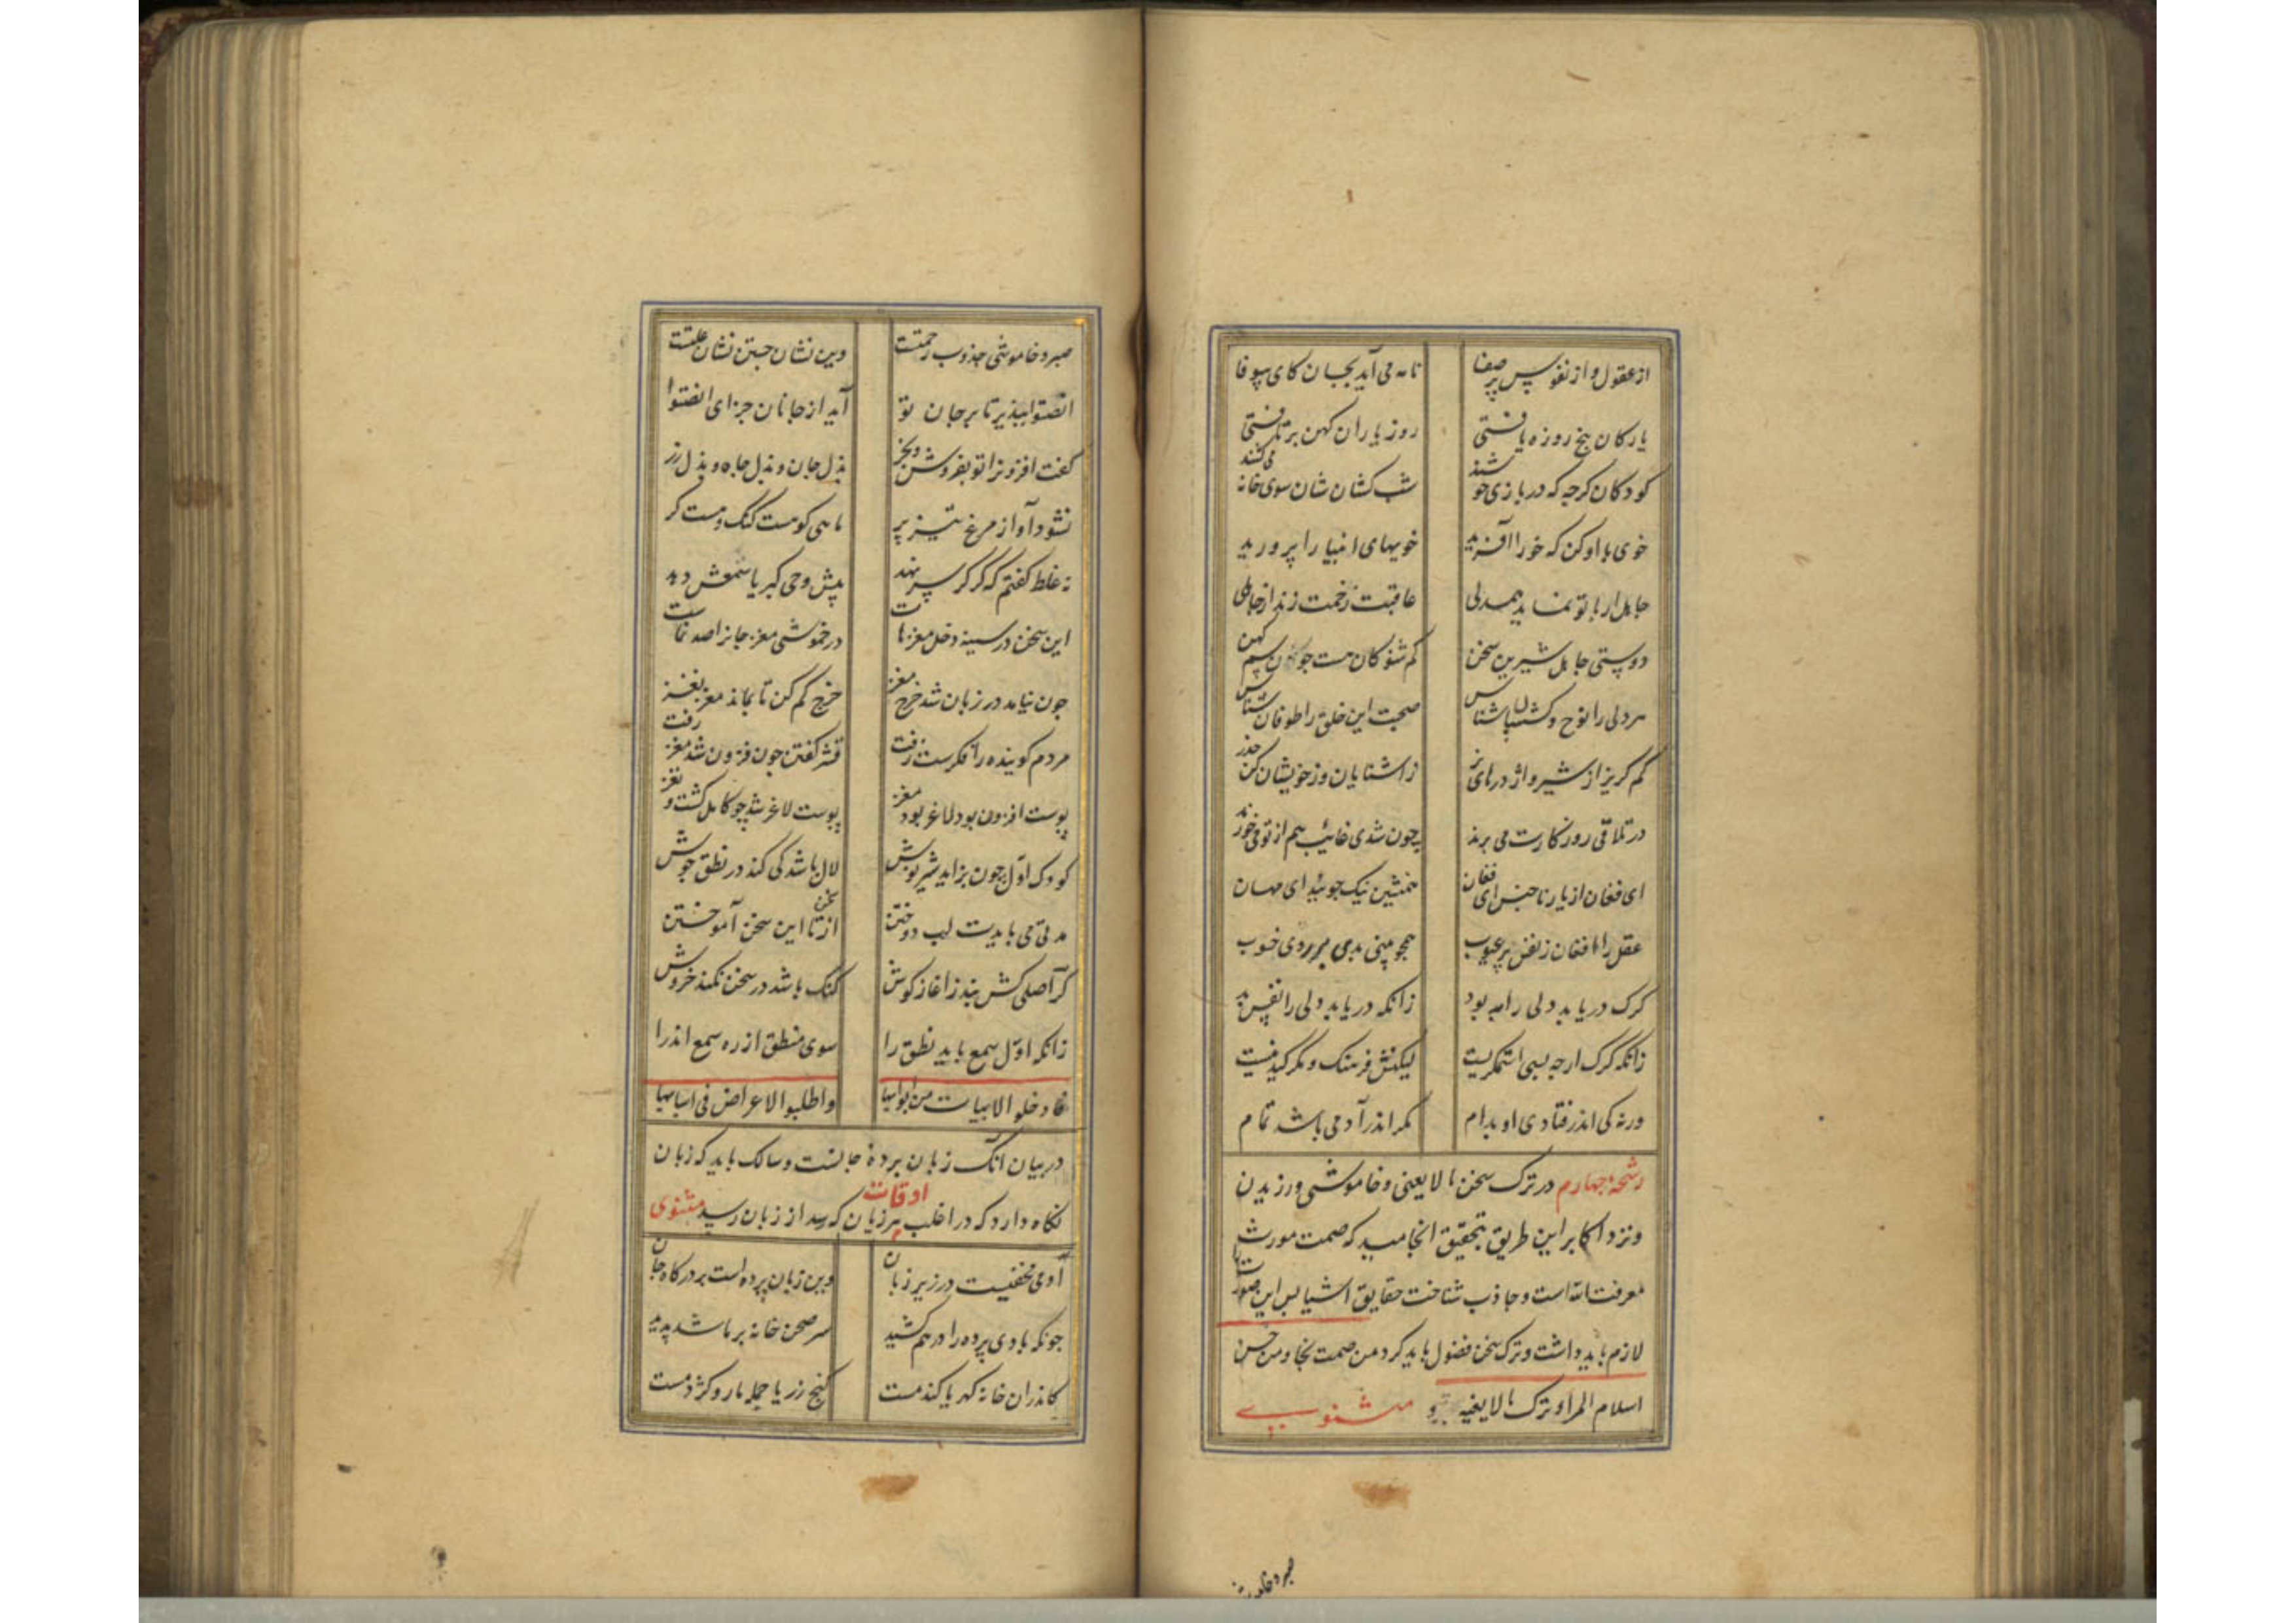 از عقول و از نفوس پر صفا نامه می آید بجان کای بیوفا
یارکان پنج روزه یافتی روز یاران کهن بر تافتی
کودکان کرچه که در بازی خوشند شب کشان شان سوی خانه می کشند
خوی با او کن که خو را آفرید خویهای انبیا را پرورید
جاهل ار با تو نماید همدلی عاقبت زخمت زند از جاهلی
دوستی جاهل شیرین سخن کم شنو کان هست چون سم کهن
هر دلی را نوح و کشتیبان شناس صحبت این خلق را طوفان شناس
کم کریز از شیر و اژدرهای نر زاشنایان و ز خویشان کن حذر
در تلاقی روزکارت می برند چون شدی غائب هم از تو می خورند
ای فغان از یار ناجنس ای فغان همنشین نیک جوئید ای مهان
عقل را افغان ز نفس پر عیوب همچو بینی بدی بر روی خوب
کرک دریابد ولی را به بود زانکه دریابد ولی را نفس بد
زانکه کرک ارچه بسی استمکریست لیکنش فرهنک و مکر کید نیست
ورنه کی اندر فتادی او بدام مکر اندر آدمی باشد تمام
رشحه چهارم در ترک سخن ما لا یعنی و خاموشی ورزیدن
و نزد اکابر این طریق بتحقیق انجامید که صمت مورث
معرفت الله است و جاذب شناخت حقایق اشیا پس این صورت را
لازم باید داشت و ترک سخن فضول باید کرد من صمت نجا و من حسن
اسلام المرا و ترک ما لا یعنیه مثنوی
صبر و خاموشی جذوب رحمتست وین نشان جستن نشان علتست
انصتوا بپذیر تا بر جان تو آید از جانان جزای انصتوا
گفت افزونرا تو بفروش و بخر بذل جان و بذل جاه و بذل زر
نشود آواز مرغ تیز پر ماهی کو هست کنک و هست کر
نه غلط کفتم که کر کر سر نهد پیش وحی کبریا سمعش دهد
این سخن در سینه دخل مغزهاست در خموشی مغز جانرا صد نماست
چون نیامد در زبان شد خرج مغز خرج کم کن تا بماند مغز نغز
مردم کوینده را فکرست زفت قشر کفتن چون فزون شد مغز رفت
پوست افزون بود لاغر بود مغز پوست لاغر شد چو کامل کشت و نغز
کودک اول چون بزاید شیرنوش لال باشد کی کند در نطق جوش
مدتی می بایدت لب دوختن از سخن تا این سخن آموختن
کر اصلی کش نبد ز اغاز کوش کنک باشد در سخن نکند خروش
زانکه اول سمع باید نطق را سوی منطق از ره سمع اندرا
فادخلوا الابیات من ابوابها واطلبوا الاعراض فی اسبابها
در بیان آنک زبان پرده جانست و سالک باید که زبان
نکاه دارد که در اغلب اوقات هر زیان که رسد از زبان رسد مثنوی
آدمی مخفیست در زیر زبان وین زبان پرده است بر درکاه جان
چونکه بادی پرده را درهم کشید سر صحن خانه بر ما شد پدید
کاندران خانه کهر یا کندمست کنج زر یا جمله مار و کژدمست